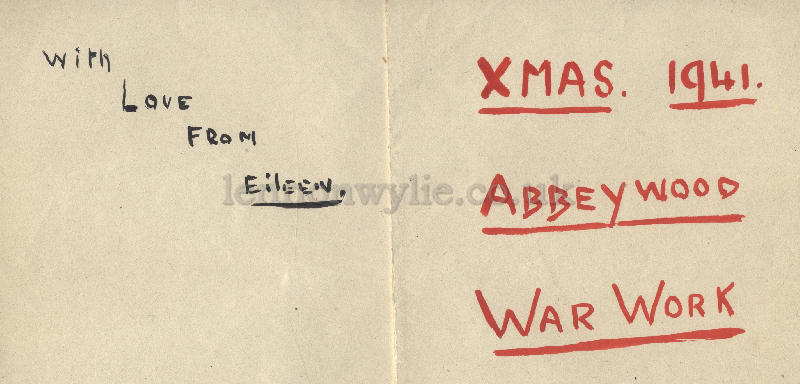 With
Love
From
Eileen.
lennonwylie.co.uk
XMAS. 1941.
ABBEYWOOD
WAR WORK